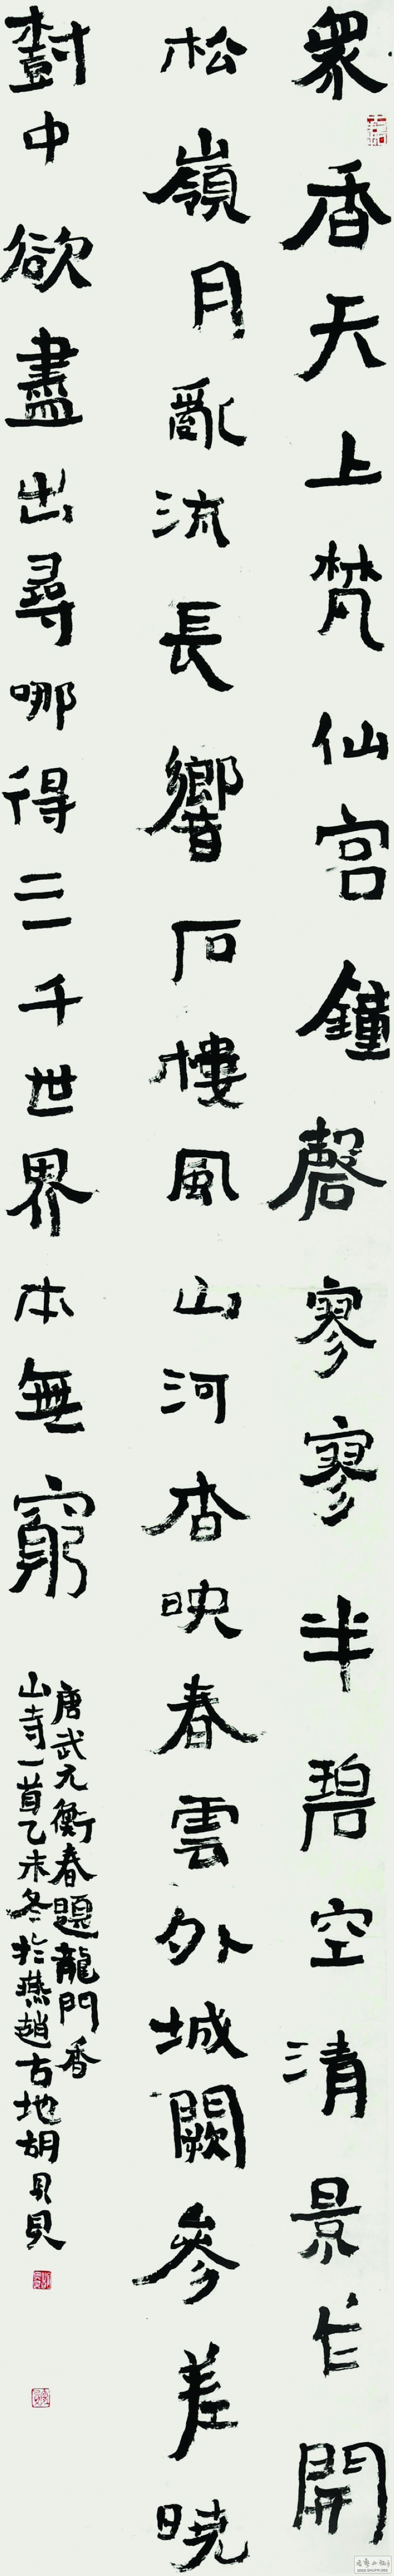 眾香天上梵仙宮鐘磬寥寥半碧空清景乍開
松嶺月亂流長響石樓風山河杳映春雲外城闕參差曉
樹中欲盡出尋哪得三千世界本無窮
唐武元衡春題龍門香
山寺一首乙未冬於燕趙古地胡貝貝